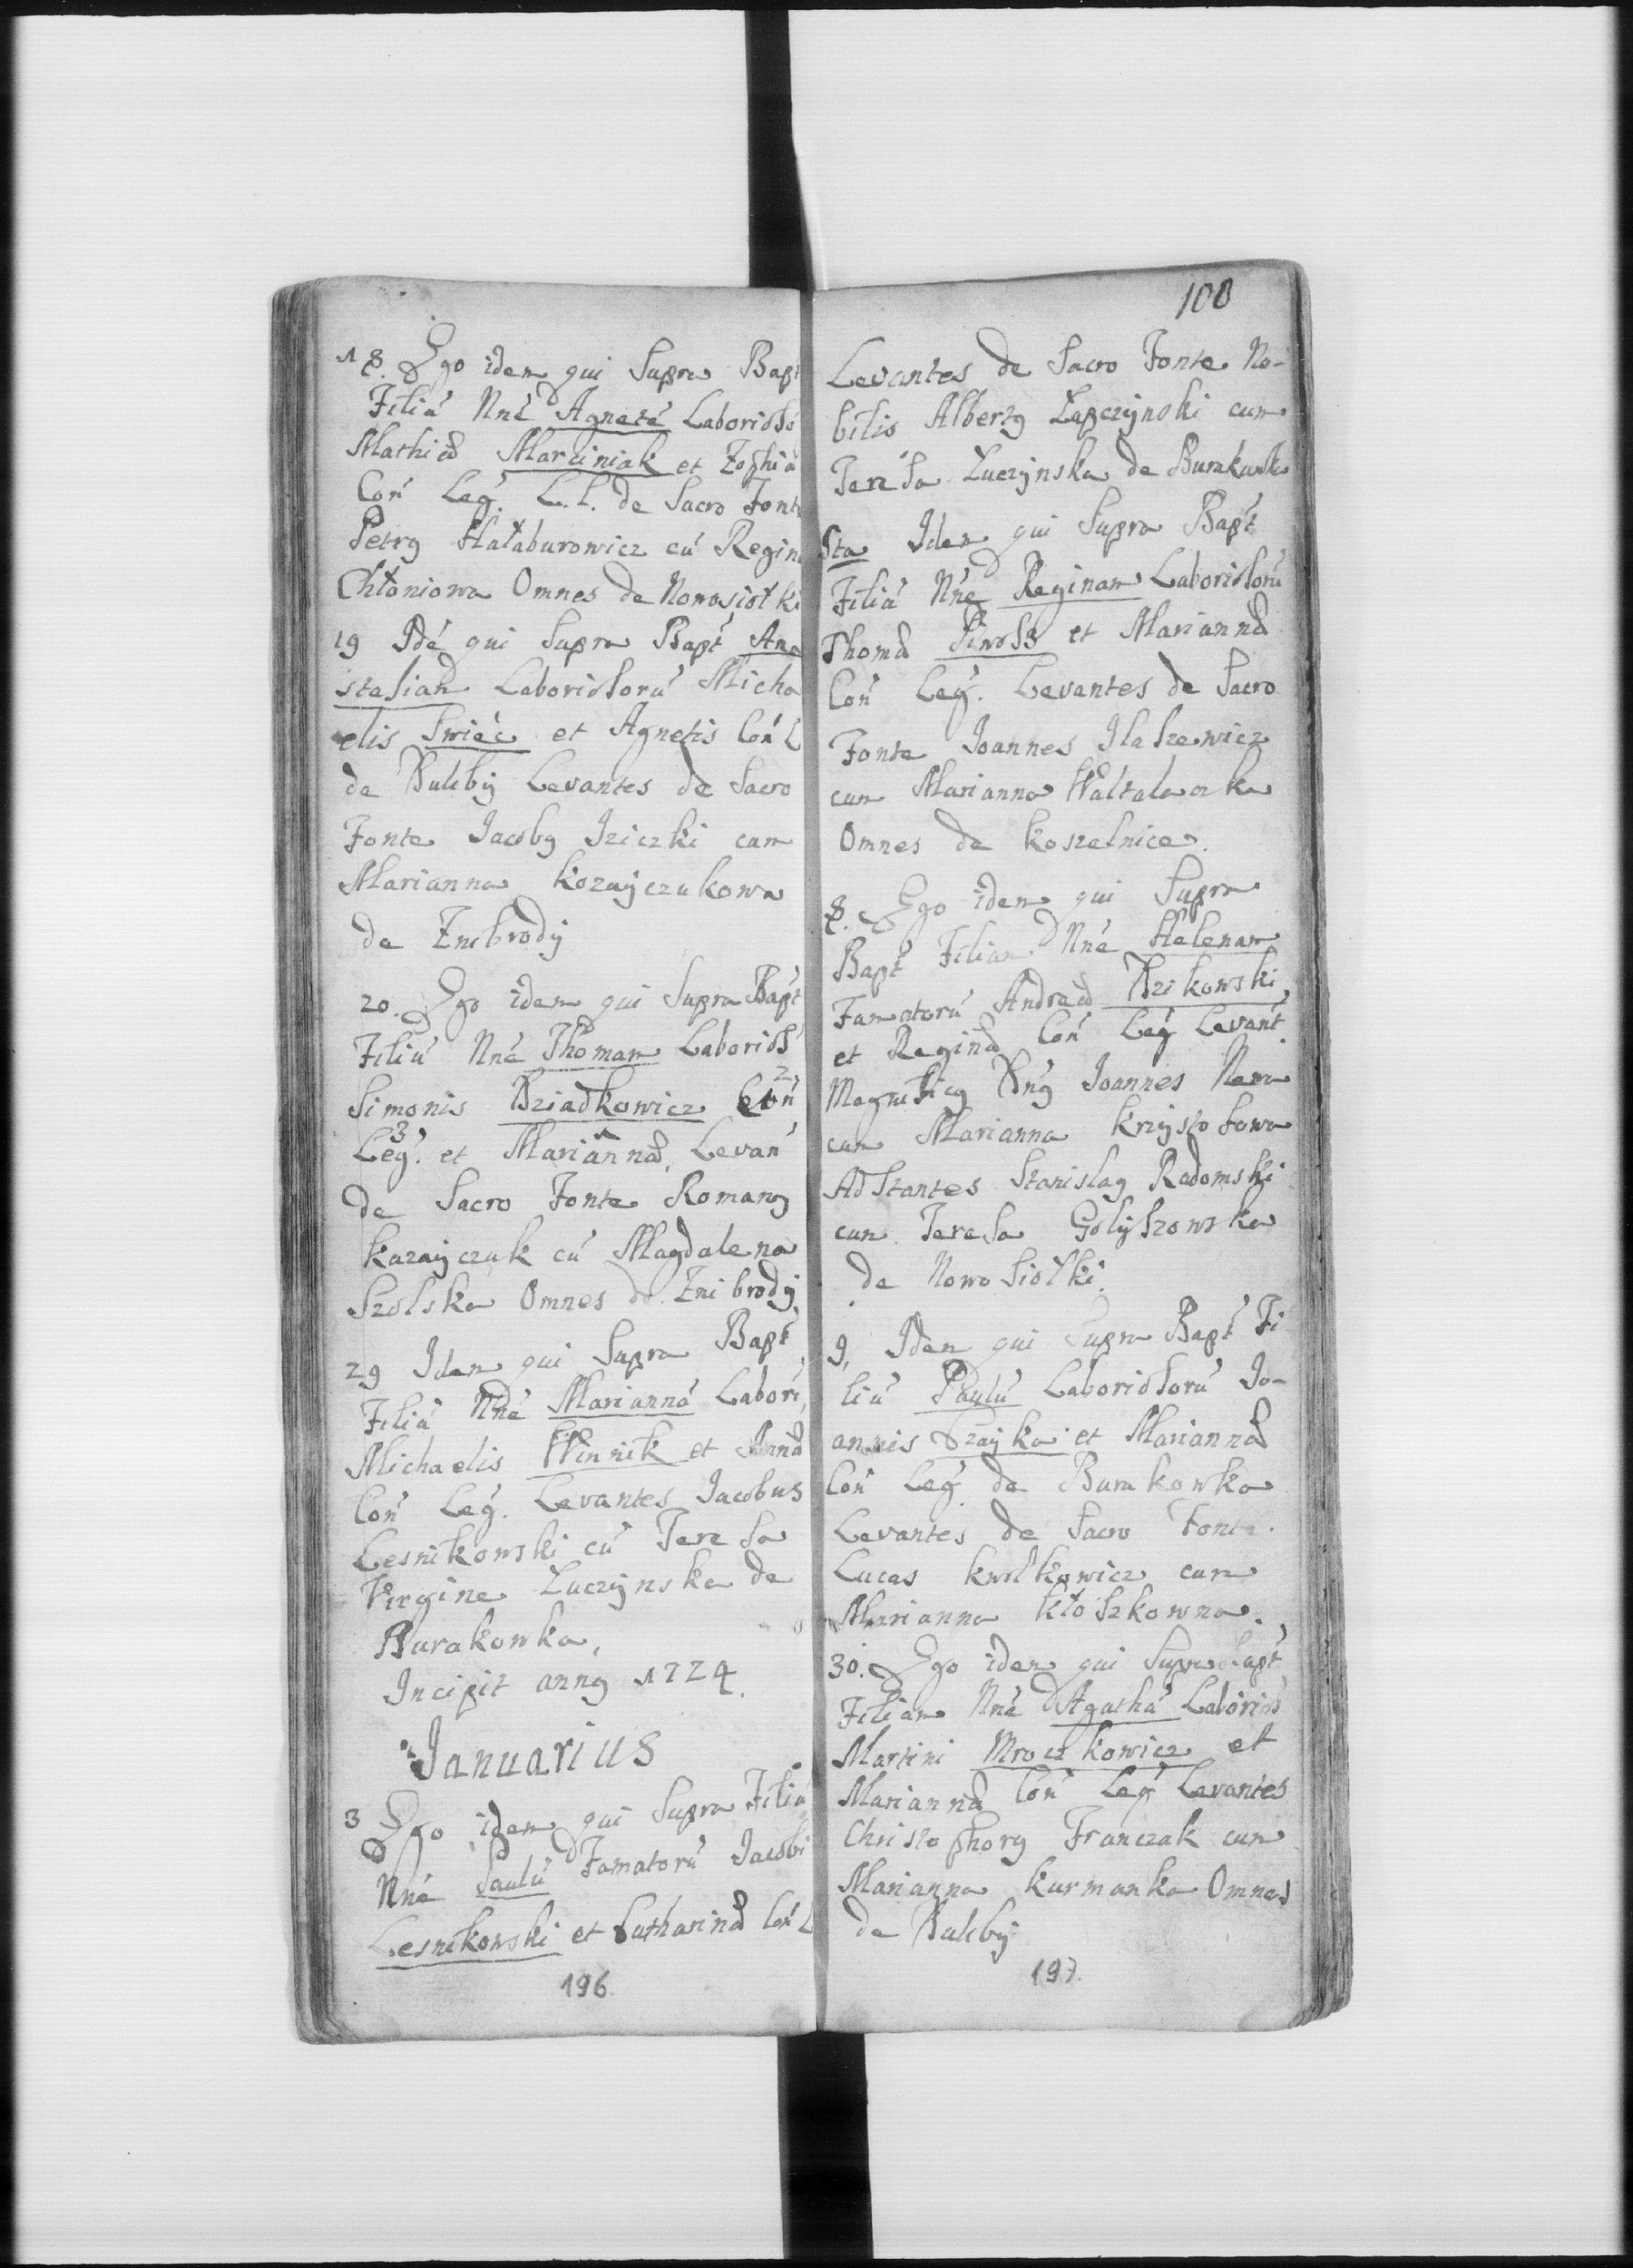 18. Ego idem qui Supra Bapt
Filiá Nné Agneté Laborioso
Mathiæ Marciniak et Zophia
Coń Leg. L.l. de Sacro Fonte
Petry Hałaburowicz cú Regina
Chłoniowa Omnes de Nowosiołki
19 Idé qui Supra Bapt Ana
stasiam Laboriosorú Micha
elis Swiéc et Agnetis Coń L
de Duliby Levantes de Sacro
Fonte Jacoby Iziczki cum
Marianna Kozayczukowa
de Znibrody
20. Ego idem qui Supra Bapt
Filiú Nné Thomam Laborios
Simonis Dziadkowicz Coń 2
Leg. 3 et Mariannæ, Levan
de Sacro Fonte Romany
Kazayczuk cú Magdalena
Szolska Omnes de Znibrody
29 Idem qui Supra Bapt
Filiá Nné Marianná Labori,
Michaelis Winnik et Annæ
Coń Leg. Levantes Jacobus
Lesnikowski cú Teresa
Virgine Luczynska de
Burakowka,
Incipit anny 1724.
Januarius
3 Ego idem qui Supra Filiú
Nné Paulú Famatorú Jacobi
Lesnikowski et Catharinæ Coń L
196
100
Levantes de Sacro Fonte No-
bilis Alberty Łapczynski cum
Teresa Luczynska de Burakowka
5ta Idem qui Supra Bapt
Filiá Nné Reginam Laboriosorú
Thomæ et Mariannæ
Coń Leg. Levantes de Sacro
Fonte Joannes Ilaszewicz
cum Marianna
Omnes de Koszelnice.
8. Ego idem qui Supra
Bapt Filiam Nné Helenam
Famatorú Andreæ Dzikowski,
et Reginæ Coń Leg Levant
Magnificy Dny Joannes
cum Marianna Krzysztofowa
Adstantes Stanislay Radomski
cum Teresa Golyszowska
de Nowosiołki.
9, Idem qui Supra Bapt Fi
liú Paulú Laboriosorú Jo-
annis Szayka et Mariannæ
Coń Leg de Burakowka
Levantes de Sacro Fonte.
Lucas Kwolkowicz cum
Marianna Kłoszkowna.
30. Ego idem qui Supra Bapt
Filiam Nné Agathá Laborios
Martini Mroczkowicz et
Mariannæ Coń Leg Levantes
Christophory Franczak cum
Marianna Kurmanka Omnes
de Duliby
197.